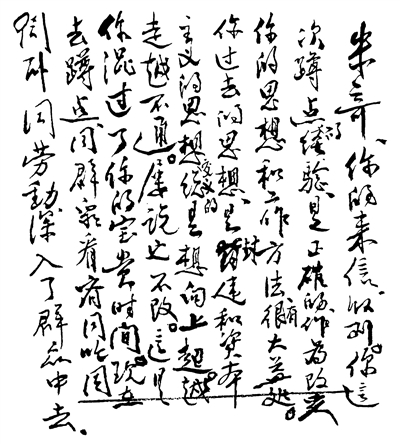 朱奇、你的来信收到你这
次蹲点的经验是正确的作为改变
你的思想和工作方法很有大益处。
你过去的思想是封建和资本
主义的思想总是想向上超越
走越不通。屡说也不改。这是
你混过了你的宝贵时间。现在
去蹲点同群众看齐同吃同
卧同劳動深入了群众中去.